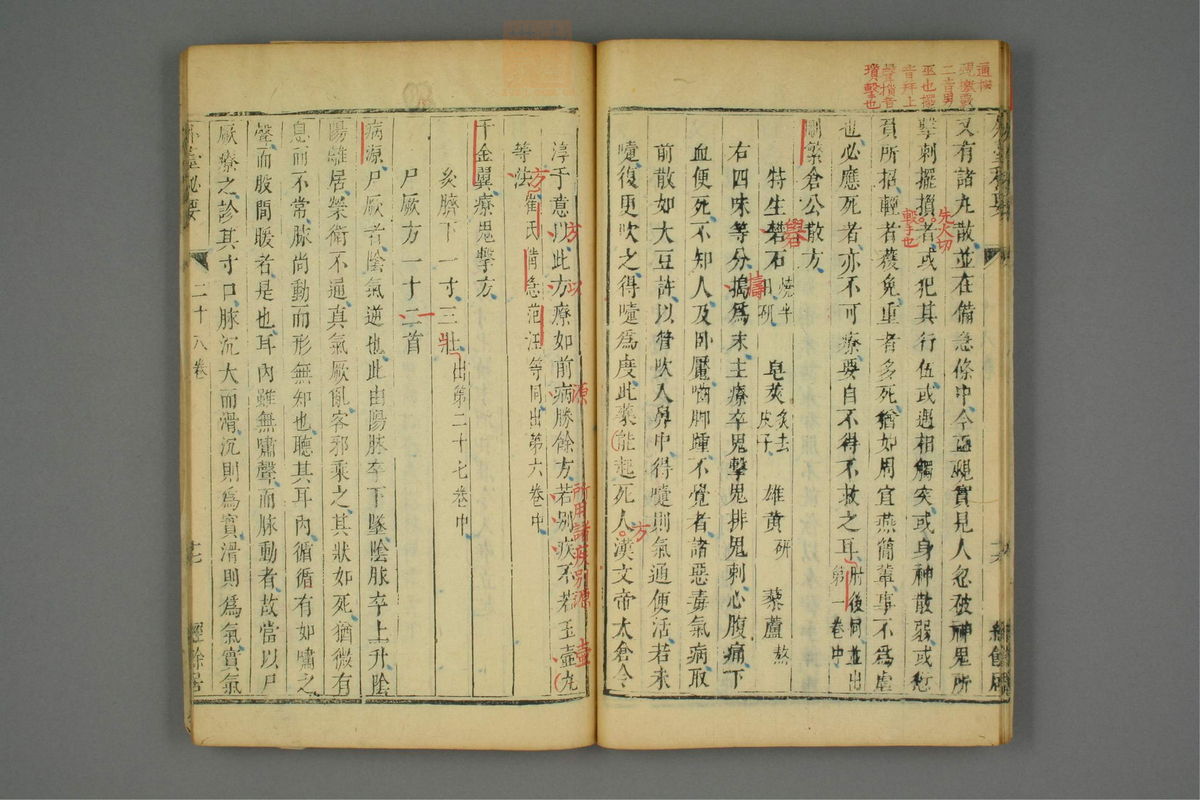 又有諸丸散並在備急條中今巫覡實見人忽被神鬼所
擊刺擺損者或犯其行伍或遇相觸突或身神散弱或愆
負所招輕者獲免重者多死猶如周宣燕簡輩事不為虛
也必應死者亦不可療要自不得不救之耳肘後同並出第一卷中
刪繁倉公散方
特生礬石燒半日研 皂莢炙去皮子 雄黃研 藜蘆熬
右四味等分搗為末主療卒鬼擊鬼排鬼刺心腹痛下
血便死不知人及臥魘嚙腳踵不覺者諸惡毒氣病取
前散如大豆許以管吹入鼻中得嚏則氣通便活若未
嚏復更吹之得嚏為度此藥能起死人漢文帝太倉令
淳于意以此方療如前病勝餘方若別疾不若玉壺丸
等法崔氏備急范汪等同出第六卷中
千金翼療鬼擊方
炙臍下一寸三壯出第二十七卷中
尸厥方一十二首
病源尸厥者陰氣逆也此由陽脉卒下墜陰脉卒上升陰
陽離居榮衛不通真氣厥亂客邪乘之其狀如死猶微有
息而不常脉尚動而形無知也聽其耳內循循有如嘯之
聲而股間暖者是也耳內雖無嘯聲而脉動者故當以尸
厥療之診其寸口脉沉大而滑沉則為實滑則為氣實氣
外臺秘要 二十八卷 經餘居
先火切
擊也
礬
擣
方
方
以
源
所用諸疾別源
壺
方
一
二音男
巫也擺
音拜上
聲損音
損擊也